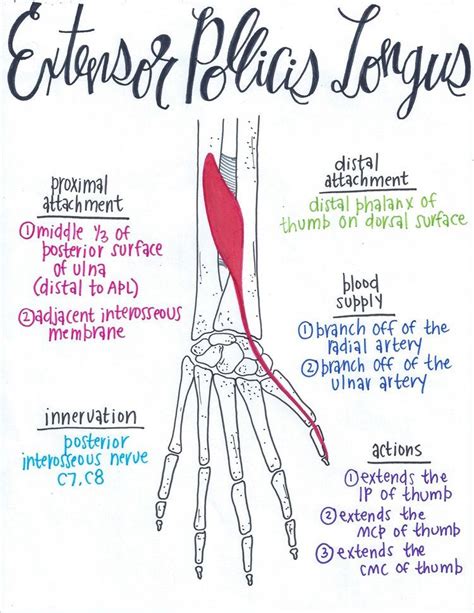 Extensor Pollicis Longus
proximal
attachment
①middle ⅓ of
posterior surface
of ulna
(distal to APL)
②adjacent interosseous
membrane
distal
attachment
distal phalanx of
thumb on dorsal surface
blood
supply
①branch off of the
radial artery
②branch off of the
ulnar artery
innervation
posterior
interosseous nerve
C7, C8
actions
①extends the
IP of thumb
②extends the
MCP of thumb
③extends the
CMC of thumb